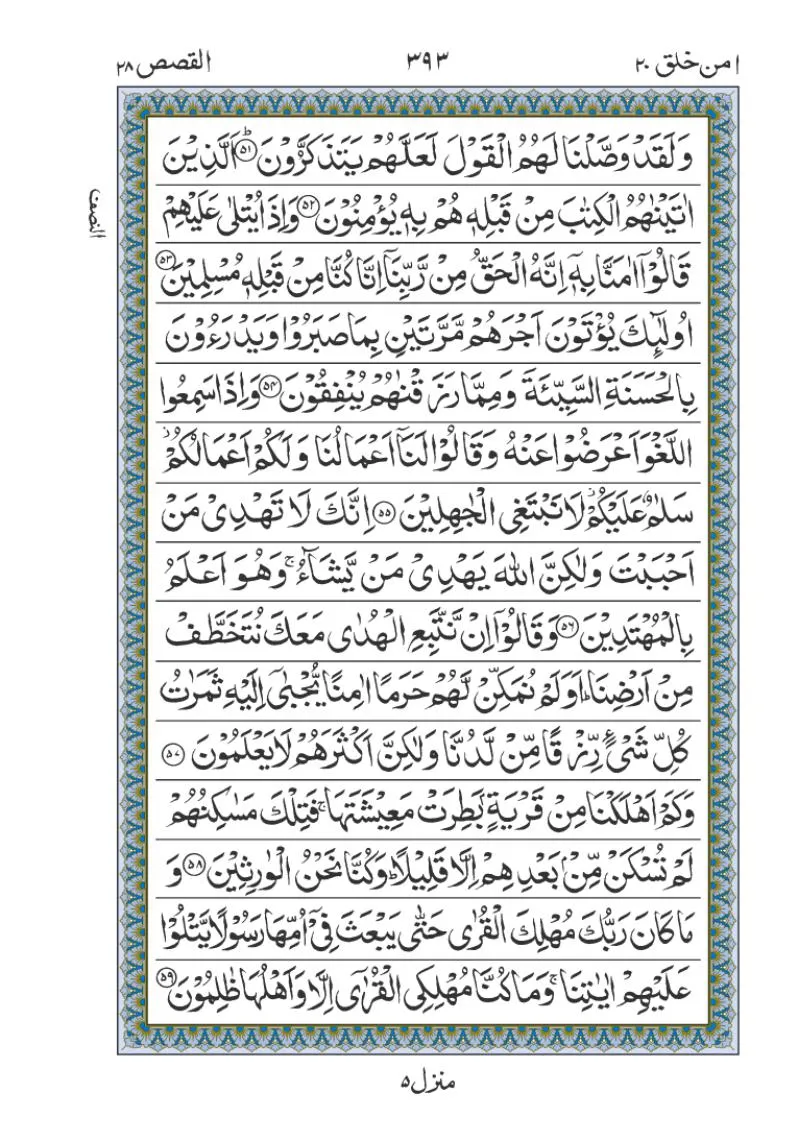 امن خلق ۲۰
۳۹۳
القصص ۲۸
وَلَقَدْ وَصَّلْنَا لَهُمُ الْقَوْلَ لَعَلَّهُمْ يَتَذَكَّرُوْنَ ؕ۝۵۱ اَلَّذِيْنَ
اٰتَيْنٰهُمُ الْكِتٰبَ مِنْ قَبْلِهٖ هُمْ بِهٖ يُؤْمِنُوْنَ ۝۵۲ وَاِذَا يُتْلٰى عَلَيْهِمْ
قَالُوْۤا اٰمَنَّا بِهٖۤ اِنَّهُ الْحَقُّ مِنْ رَّبِّنَاۤ اِنَّا كُنَّا مِنْ قَبْلِهٖ مُسْلِمِيْنَ ۝۵۳
اُولٰٓئِكَ يُؤْتَوْنَ اَجْرَهُمْ مَّرَّتَيْنِ بِمَا صَبَرُوْا وَيَدْرَءُوْنَ
بِالْحَسَنَةِ السَّيِّئَةَ وَمِمَّا رَزَقْنٰهُمْ يُنْفِقُوْنَ ۝۵۴ وَاِذَا سَمِعُوا
اللَّغْوَ اَعْرَضُوْا عَنْهُ وَقَالُوْا لَنَاۤ اَعْمَالُنَا وَلَكُمْ اَعْمَالُكُمْ ؗ
سَلٰمٌ عَلَيْكُمْ ؗ لَا نَبْتَغِى الْجٰهِلِيْنَ ۝۵۵ اِنَّكَ لَا تَهْدِىْ مَنْ
اَحْبَبْتَ وَلٰكِنَّ اللّٰهَ يَهْدِىْ مَنْ يَّشَآءُ ۚ وَهُوَ اَعْلَمُ
بِالْمُهْتَدِيْنَ ۝۵۶ وَقَالُوْۤا اِنْ نَّتَّبِعِ الْهُدٰى مَعَكَ نُتَخَطَّفْ
مِنْ اَرْضِنَا ؕ اَوَلَمْ نُمَكِّنْ لَّهُمْ حَرَمًا اٰمِنًا يُّجْبٰٓى اِلَيْهِ ثَمَرٰتُ
كُلِّ شَىْءٍ رِّزْقًا مِّنْ لَّدُنَّا وَلٰكِنَّ اَكْثَرَهُمْ لَا يَعْلَمُوْنَ ۝۵۷
وَكَمْ اَهْلَكْنَا مِنْ قَرْيَةٍۭ بَطِرَتْ مَعِيْشَتَهَا ۚ فَتِلْكَ مَسٰكِنُهُمْ
لَمْ تُسْكَنْ مِّنْۢ بَعْدِهِمْ اِلَّا قَلِيْلًا ؕ وَكُنَّا نَحْنُ الْوٰرِثِيْنَ ۝۵۸ وَ
مَا كَانَ رَبُّكَ مُهْلِكَ الْقُرٰى حَتّٰى يَبْعَثَ فِىْۤ اُمِّهَا رَسُوْلًا يَّتْلُوْا
عَلَيْهِمْ اٰيٰتِنَا ۚ وَمَا كُنَّا مُهْلِكِى الْقُرٰٓى اِلَّا وَاَهْلُهَا ظٰلِمُوْنَ ۝۵۹
النصف
منزل ۵